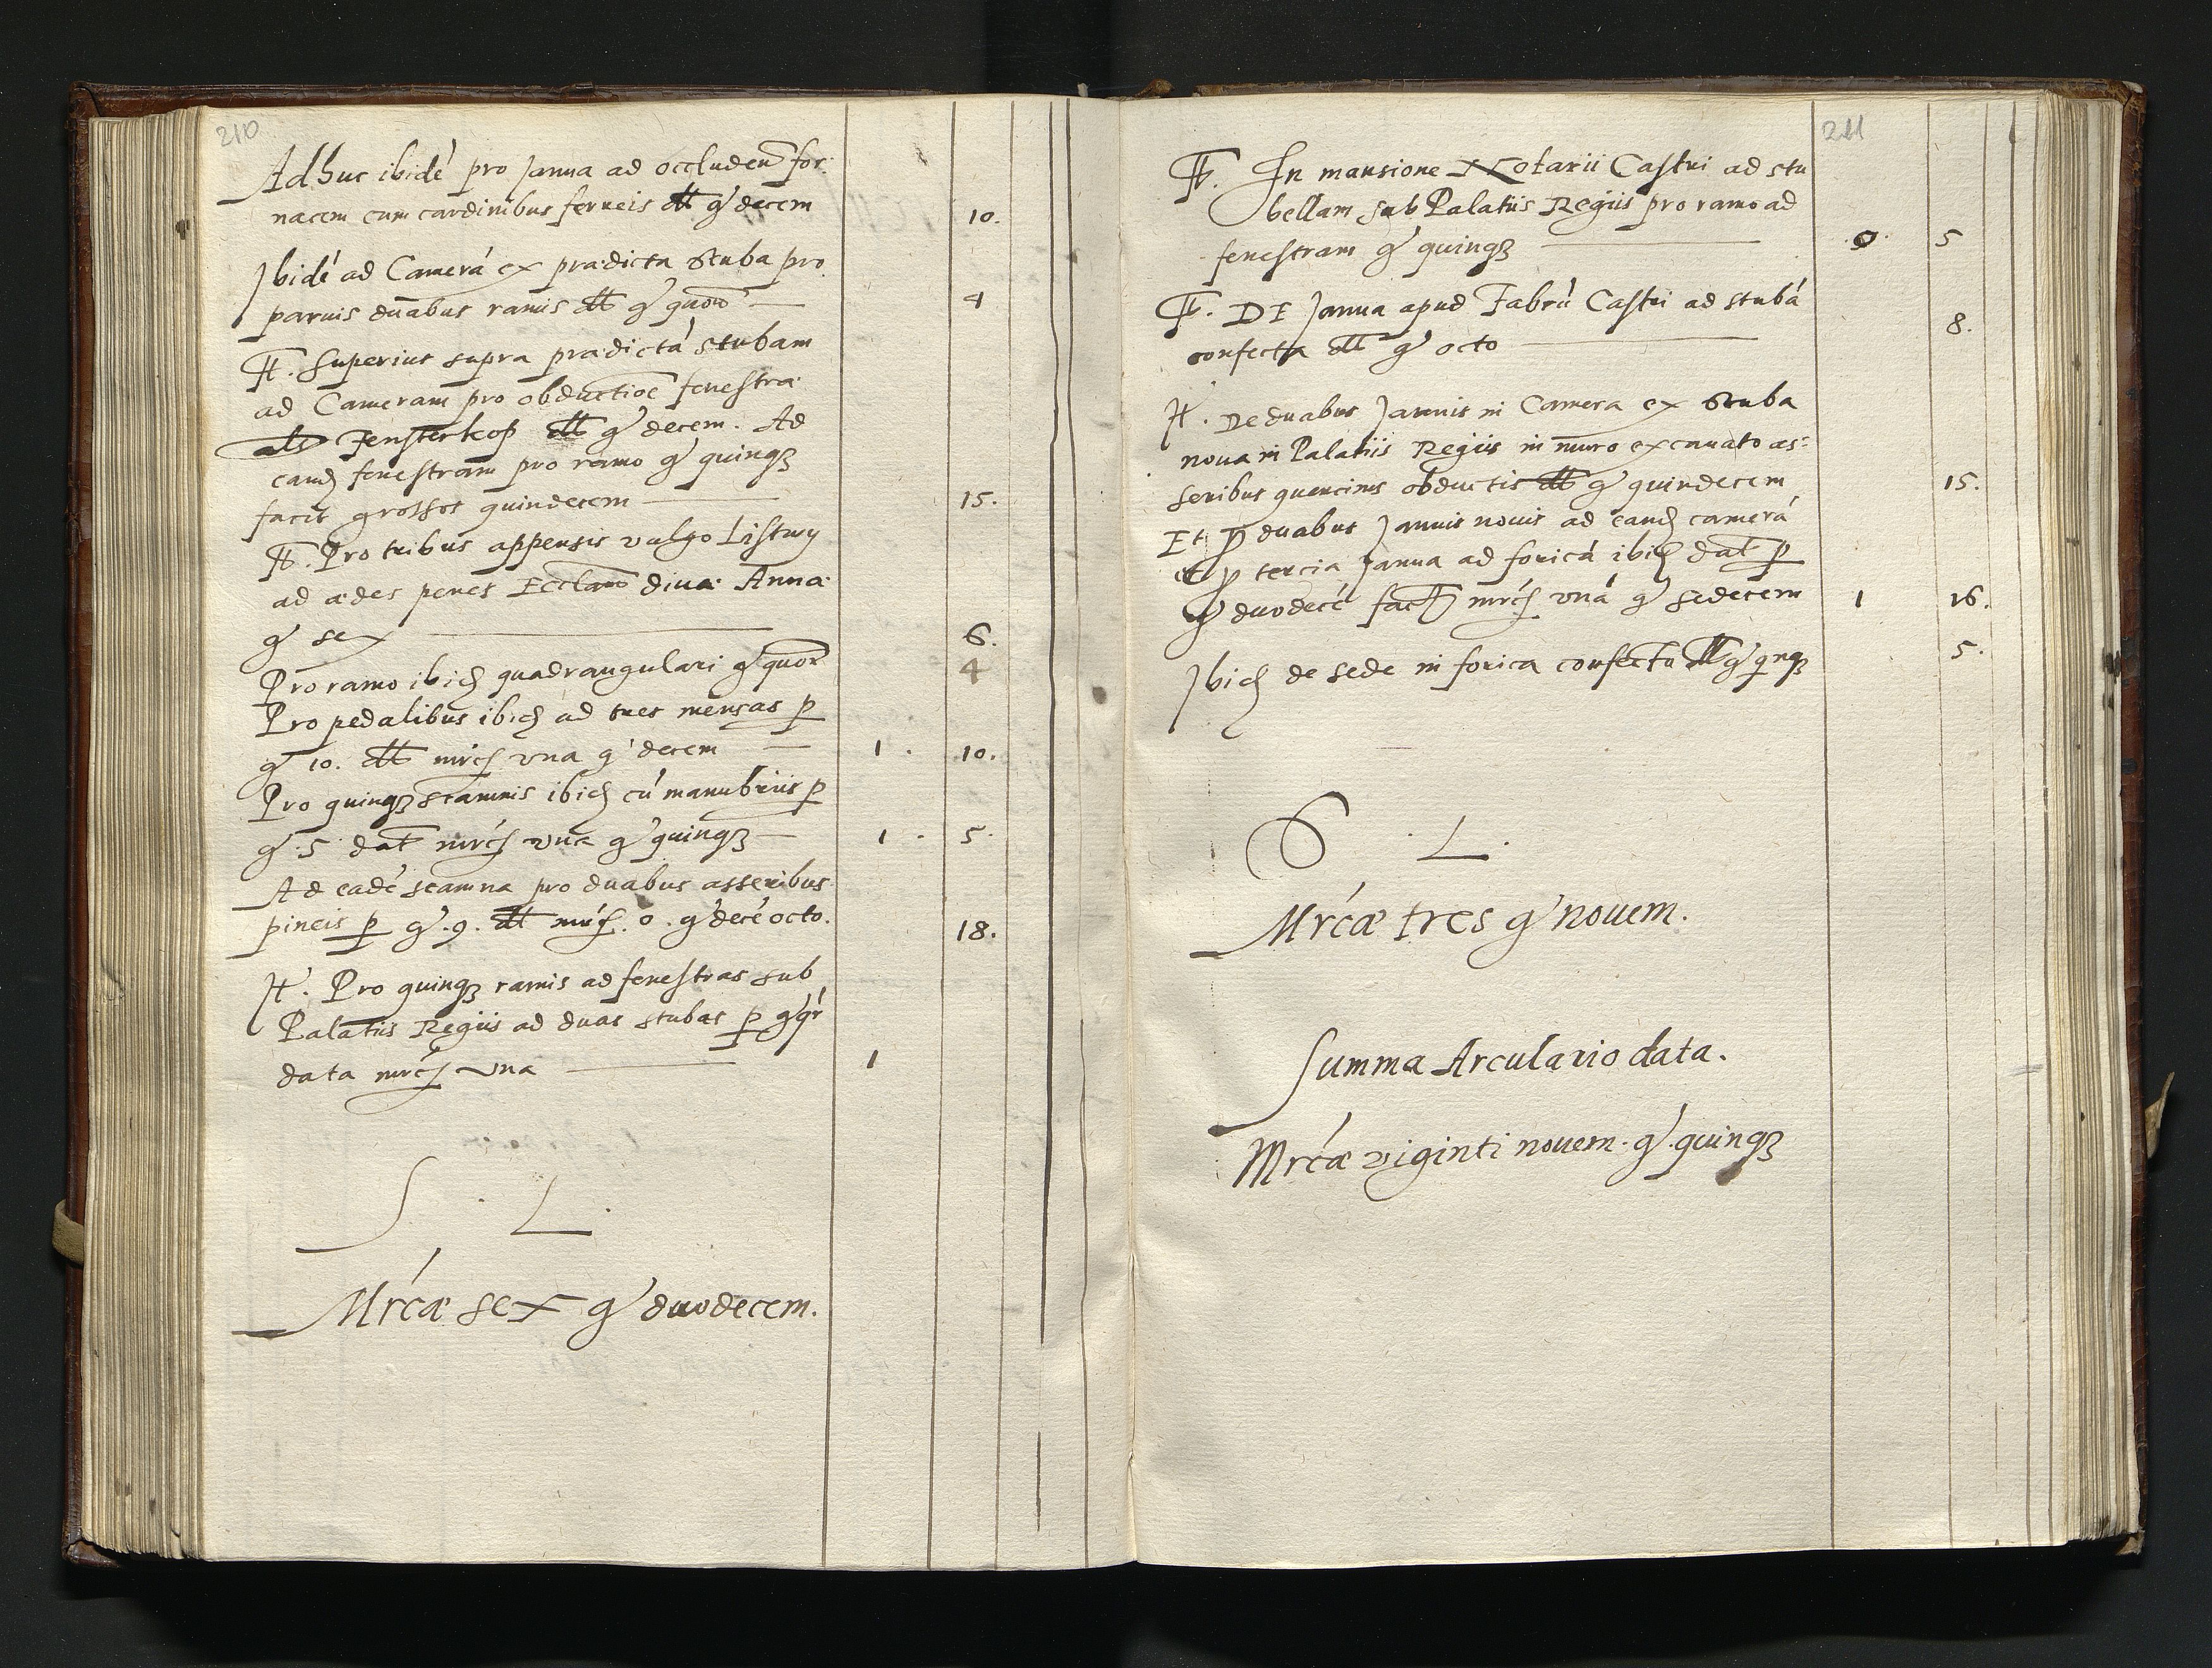 210
Adhuc ibidé pro Janua ad occluden for:
nacem cum cardinibus ferreis dtt gͬ decem 10.
Ibidé ad Camerá ex prædicta Stuba pro
paruis duabus ramis dtt gͬ quor 4
It. Superius supra prædictá stubam
ad Cameram pro obductioe fenestræ
als Fensterkop dtt gͬ decem. Ad
eandꝫ fenestram pro ramo gͬ quinqꝫ
facit grossos quindecem 15.
It. Pro tribus appensis vulgo Listwy
ad ædes penes Ecclam diuæ Annæ
gͬ sex 6.
Pro ramo ibidꝫ quadrangulari gͬ quor 4
Pro pedalibus ibidꝫ ad tres mensas p
gͬ 10. dtt mrcꝫ vna gͬ decem 1. 10.
Pro quinqꝫ scamnis ibidꝫ cú manubriis p
gͬ 5 dat mrcꝫ vna gͬ quinqꝫ 1. 5.
Ad eadé scamna pro duabus asseribus
pineis p gͬ .9. dtt mrcꝫ. 0. gͬ decé octo. 18.
It. Pro quinqꝫ ramis ad fenestras sub
Palatiis Regiis ad duas stubas p gͬ qr
data mrcꝫ vna 1
S . L .
Mrcæ sex gͬ duodecem.
211
It. In mansione Notarii Castri ad stu
bellam sub Palatiis Regiis pro ramo ad
fenestram gͬ quinqꝫ .0. 5
It. DE Janua apud Fabrú Castri ad stubá
confecta dtt gͬ octo 8.
It. De duabus Januis in Camera ex Stuba
noua in Palatiis Regiis in muro excauato as:
seribus quercinis obductis dtt gͬ quindecem 15.
Et p duabus Januis nouis ad eandꝫ camerá
et p tercia Janua ad foricá ibidꝫ dat p
gͬ duodecé facit mrcꝫ vná gͬ sedecem 1 16.
Ibidꝫ de sede in forica confecta dtt gͬ qnqꝫ 5.
S . L .
Mrcæ tres gͬ nouem.
Summa Arculario data.
Mrcæ viginti nouem. gͬ. quinqꝫ